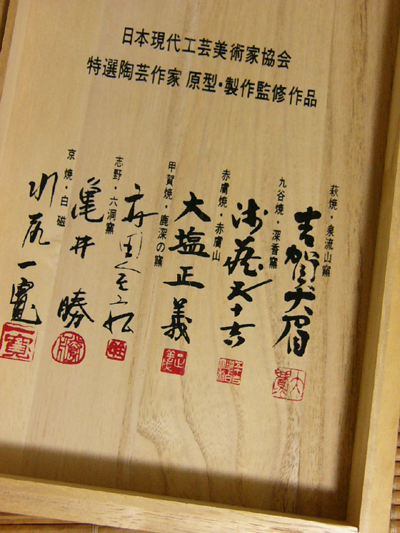 日本現代工芸美術家協会
特選陶芸作家 原型・製作監修作品
萩焼・泉流山窯
吉賀大眉
九谷焼・深香窯
浅蔵五十吉
赤膚焼・赤膚山
大塩正義
甲賀焼・鹿深の窯
志野・六洞窯
亀井勝
京焼・白磁